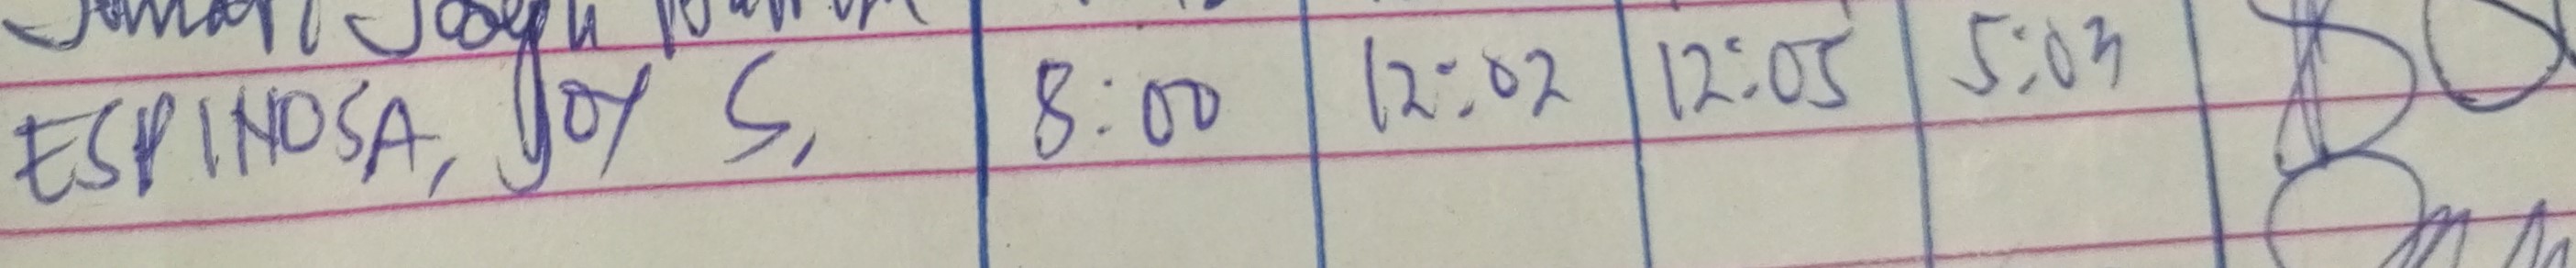 ESPINOSA, JOY S. 8:00 12:02 12:05 5:03